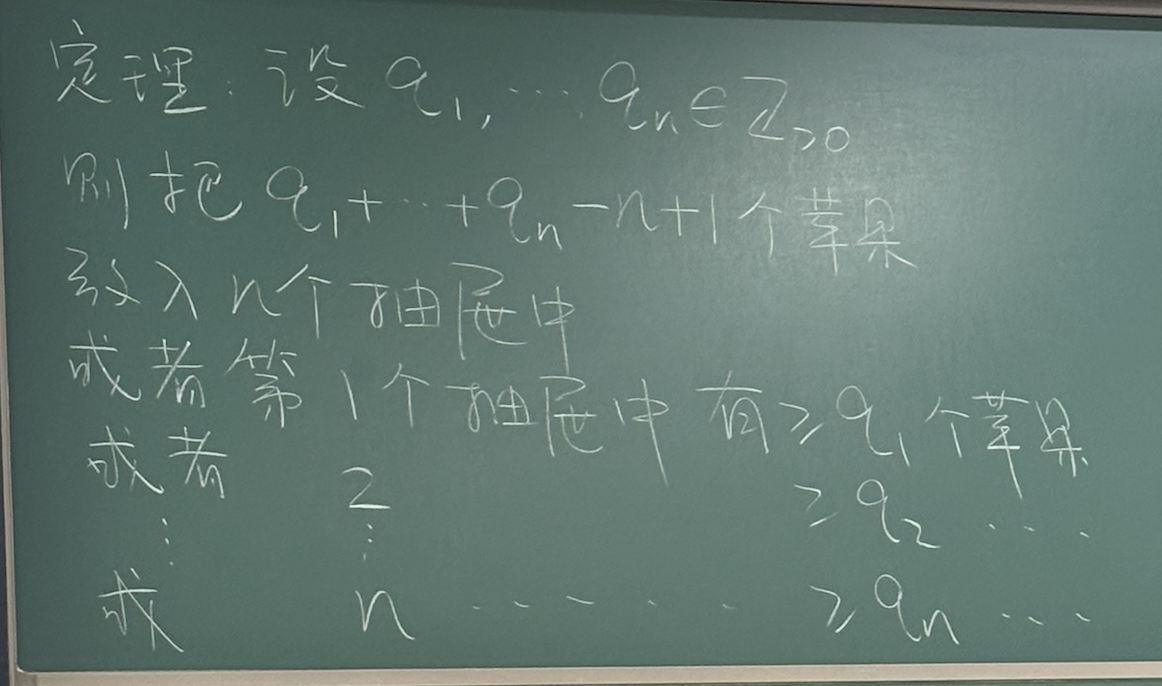 定理:设 q₁,… qₙ∈ℤ>₀
则把 q₁+…+qₙ-n+1个苹果
放入n个抽屉中
或者第1个抽屉中有≥q₁个苹果
或者 2 ≥q₂ …
⋮ ⋮
或 n …… ≥qₙ …